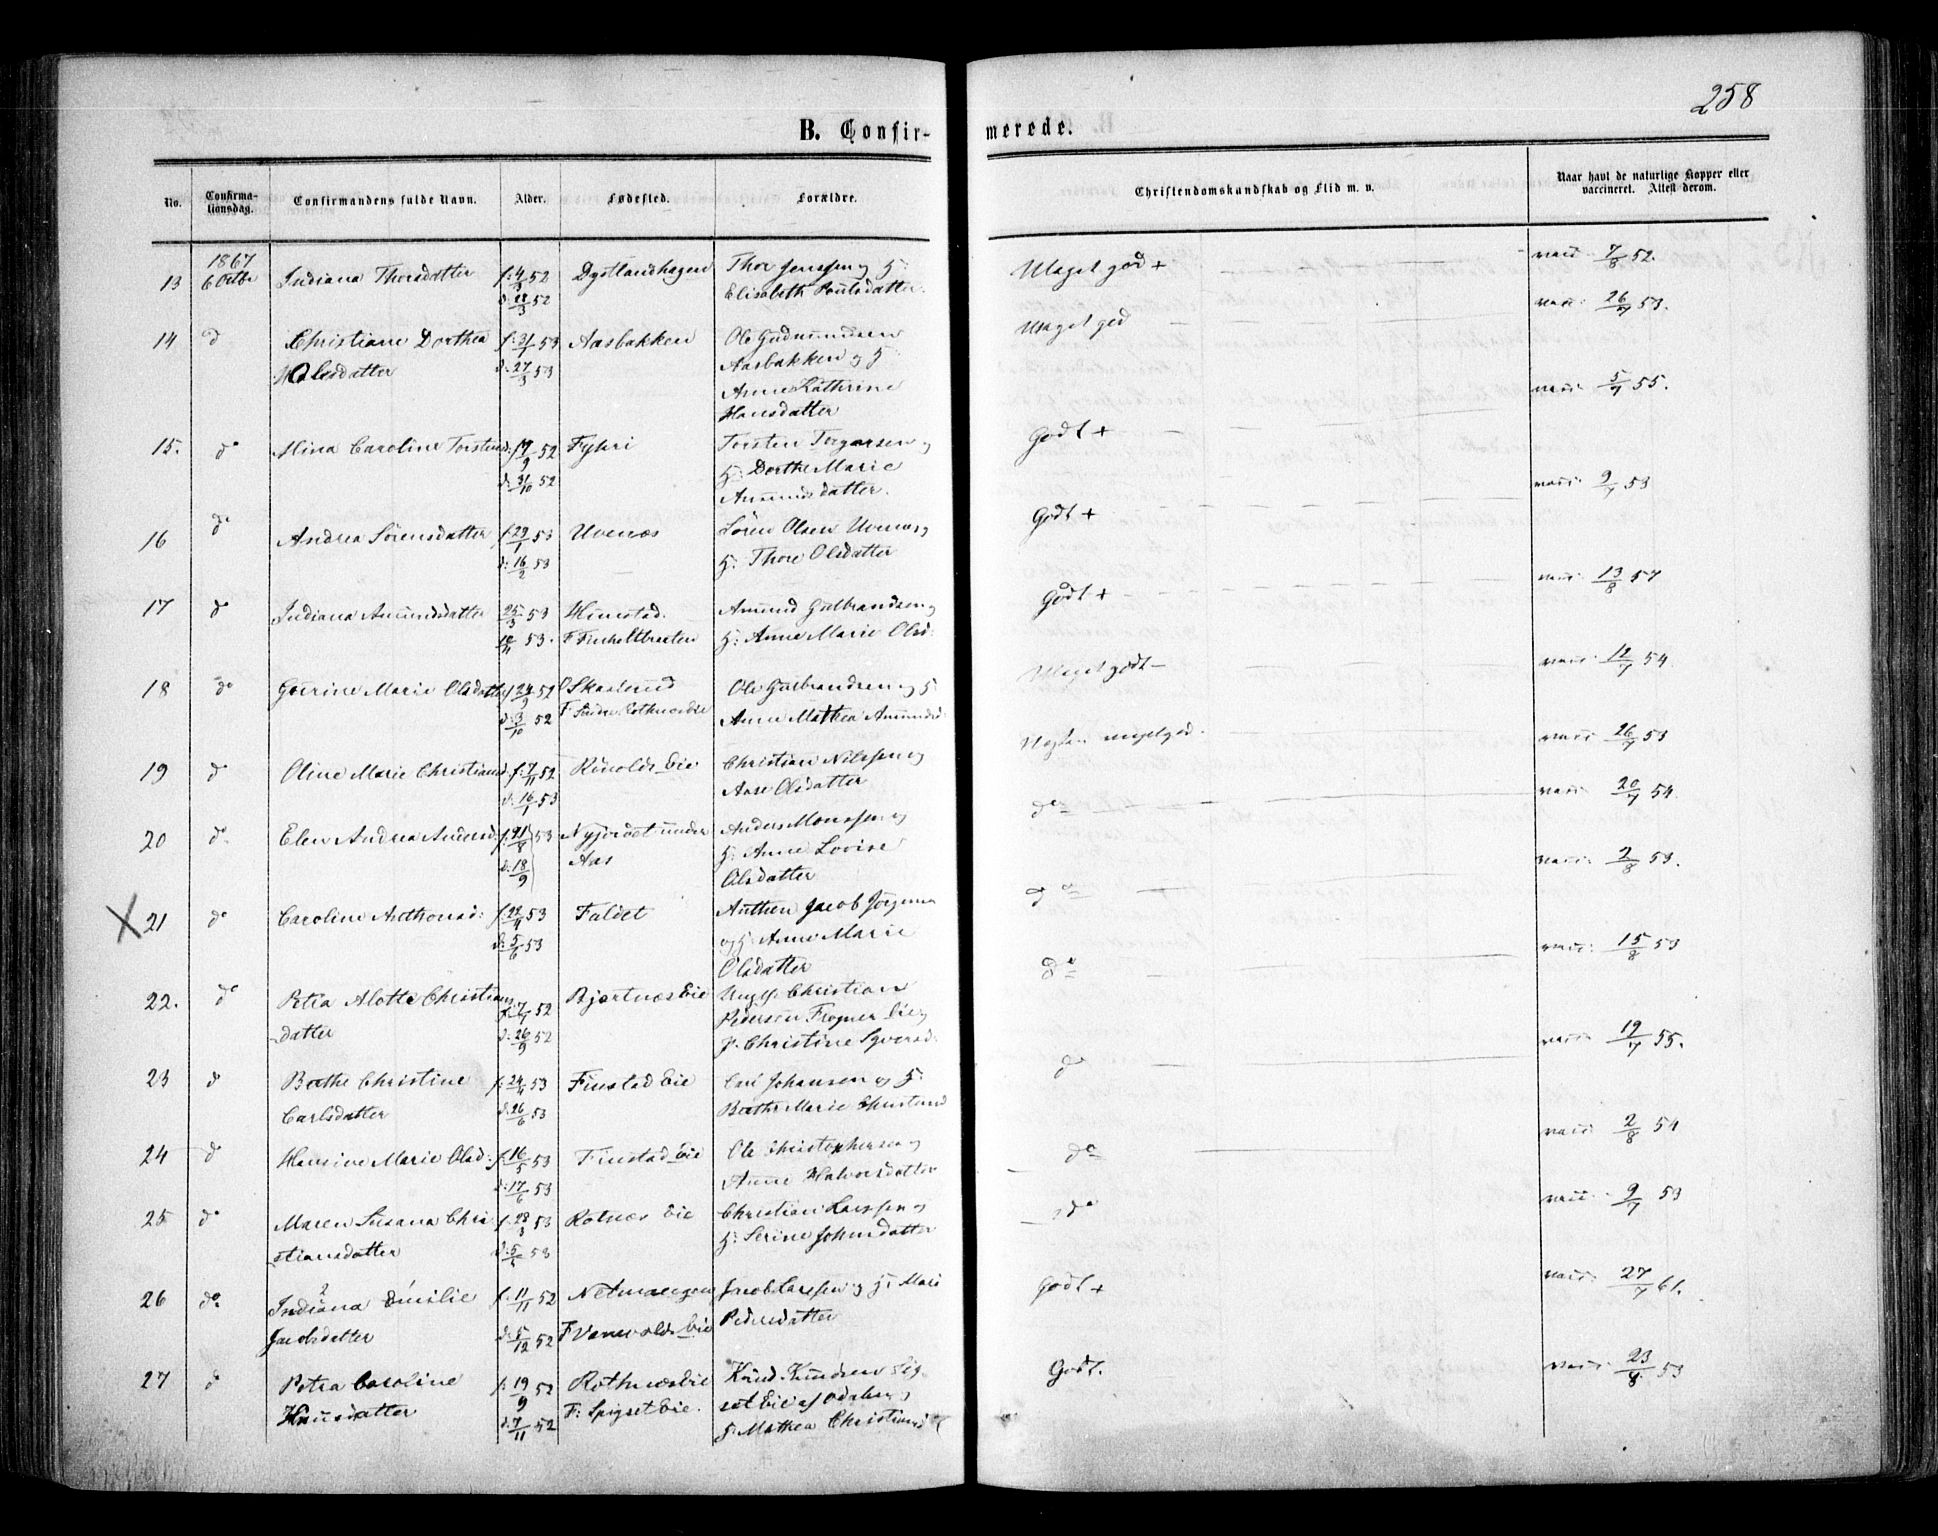 258
B. Confir- merede.
No. Confirma-tionsdag. Confirmandens fulde Navn. Alder. Fødested. Forældre. Christendomskundskab og Flid m. v. Naar havt de naturlige Kopper eller vaccineret. Attest derom.
1867
13 6 Octbr Indiana Thorsdatter f: 4/3 52 Thor Jenssen og H: Meget god + vacc: 7/8 52.
d: 28/3 52 Elisabeth Poulsdatter.
14 d Christiane Dorthea f: 31/1 53 Aasbakken Ole Gudmundsen Meget god vacc: 26/7 53.
Olesdatter d: 27/3 53 Aasbakken og H:
Anne Kathrine
Hansdatter
15. do Mina Caroline Torstensd: f: 17/9 52 Fyhri Torsten Torgersen og Godt + vacc: 5/7 55.
d: 31/10 52 H: Dorthe Marie
Amundsdatter.
16 do Andrea Sørensdatter f: 29/1 53 Uvenæs Søren Olsen Uvenæs og Godt + vacc: 9/7 53
d: 16/2 53 H: Thore Olsdatter
17 do Indiana Amundsdatter 25/3 53 Amund Gulbrandsen og Godt + vacc: 13/8 57
53. H: Anne Marie Olsd:
18 do Marie Olsdatter f: 24/9 52 Ole Gulbrandsen og H: Meget godt vacc: 12/7 54.
d: 3/10 52 Anne Mathea Amundsd:
19 do Oline Marie Christiansd. f: 7/11 52 Eie Christian Nilssen og Næsten meget god. vacc: 26/7 53
d: 16/1 53 Aase Olsdatter
20 do Elen Andrea Andersd: f: 21/8 53 Nyjordet under Anders Monssen og do vacc: 20/7 54.
d: 18/9 Aas H: Anne Lovise
Olsdatter
X 21 do Caroline Anthonsd: f: 22/4 53 Faldet Anthon Jacob Jørgensen do vacc: 2/8 53.
d: 5/6 53 og H: Anne Marie
Olsdatter
22. do Petra Alette Christians f: 7/7 52 Bjertnæs Eie Ungk: Christian do vacc: 15/8 53
datter d: 26/9 52 Pedersen Frogner Eie og
p. Christine Syversd:
23 do Berthe Christine f: 24/4 53 Finstad Eie Carl Johansen og H: do vacc: 19/7 55.
Carlsdatter d: 26/6 53 Berthe Marie
24 d Hansine Marie Olsd: f: 16/5 53 Finstad Eie Ole Christophersen og do vacc: 2/8 54
d: 17/6 53 Anne Halvorsdatter
25 do Maren Susana Chri f: 28/3 53 Rotnæs Eie Christian Larssen og do vacc: 9/7 53
stiansdatter d: 5/5 53 H: Serine Johnsdatter
26 do. Indiana Emilie f: 11/11 52 Jacob Larssen og H: Mari Godt + vacc: 27/7 61.
Jacobsdatter d: 5/12 52 Pedersdatter
27 d Petra Caroline f: 19/9 52 Rothnæs Eie Knud Knudsen Spig- Godt. vacc: 23/8 53
Knudsdatter d: 7/11 52 F: Spigset Eie. set Eie af Odalen og
H: Mathea Christiansd: